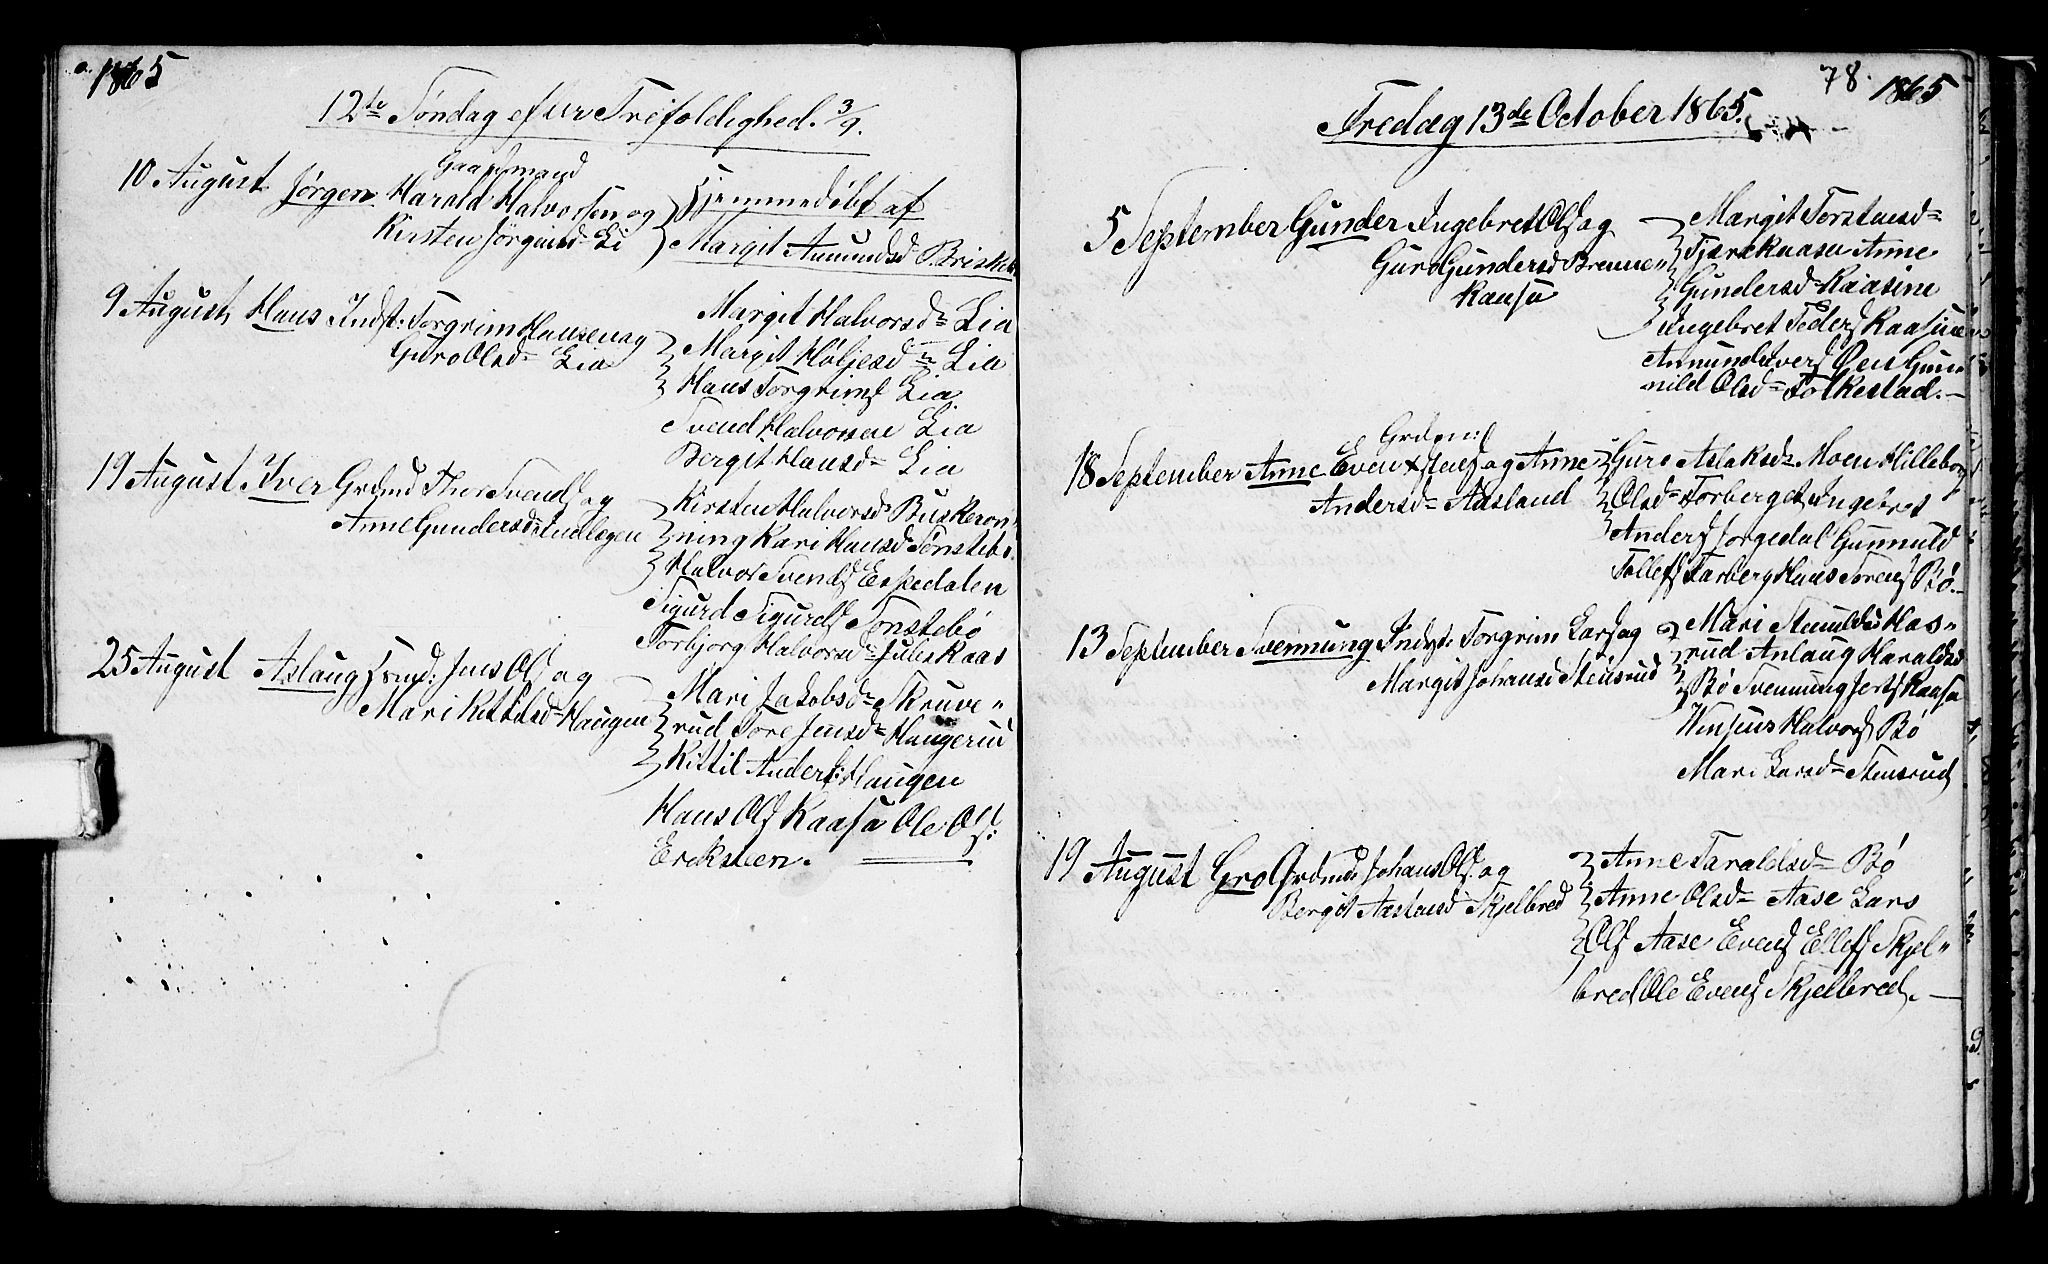 1865
12te Søndag efter Trefoldighed. 3/9.
10 August Jørgen Gaardmand Harald Halvorsen og
Kirsten Jørgensd Li
Hjemmedöbt af
Margit Amundsd Briskeh
9 August Hans Indst: Torgrim Hansen og
Guro Olsd Lia
Margit Halvorsd Lia
Margit Höljesd Lia
Hans Torgrims Lia
Svend Halvorsen Lia
Bergit Hansd Lia
19 August Iver Grdmd Thor Svends og
Anne Gundersd
Kirsten Halvorsd Buskeron"
ning Kari Hansd Tönstebö
Halvor Svends Espedalen
Sigurd Sigurds Tonstebö
Torbjorg Halvorsd
25 August Aslaug Jens Ols og
Mari Kittilsd Haugen
Mari Jakobsd Skruve"
rud Tore Jensd Haugerud
Kittil Anders: Haugen
Hans Ols Kaasa Ole Ols:
Eriksteen.
78. 1865
Fredag 13de October 1865.
5 September Gunder Ingebret Ols og
Guro Gundersd Brenne"
kaasa
Margit Torstensd
Tjærekaasa Anne
Gundersd Kaasine
Ingebret Peders Kaasine
Amund Ivers Øen Gun"
nild Olsd Folkestad.
18 September Anne Grdm: Even og Anne
Andersd Aasland
Guro Aslaksd Moen Hilleborg
Olsd Torberget Ingebret
Anders Jorgedal Gunnuld
Tollefs Tarberg Hans Torens Bö.
13 September Svennung Indst: Torgrim Lars og
Margit Johansd Stensrud
Mari Has"
rud Anlaug Haraldsd
Bö Svennung Jerts Kaasa
Halvors Bö
Mari Larsd Stensrud
19 August Gro Grdmd: Johans Ols og
Bergit Aastensd Skjelbred
Anne Taraldsd Bö
Anne Olsd Aase Lars
Ols Aase Evens Ellefs Skjel"
bred Ole Evens Skjelbred.